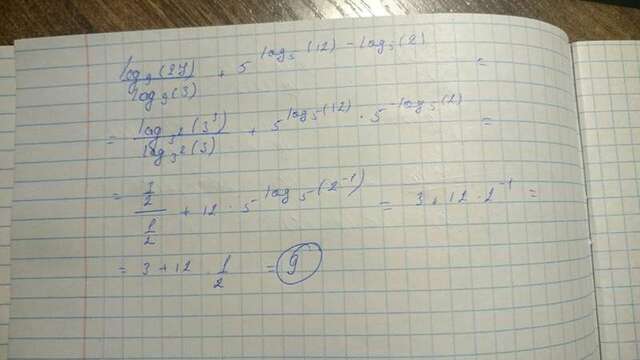 log₉(27)/log₉(3) + 5^(log₅(12) - log₅(2)) =
= log₃²(3³)/log₃²(3) + 5^(log₅(12)) · 5^(-log₅(2)) =
= (3/2)/(1/2) + 12 · 5^(log₅(2⁻¹)) = 3 + 12 · 2⁻¹ =
= 3 + 12 1/2 = 9